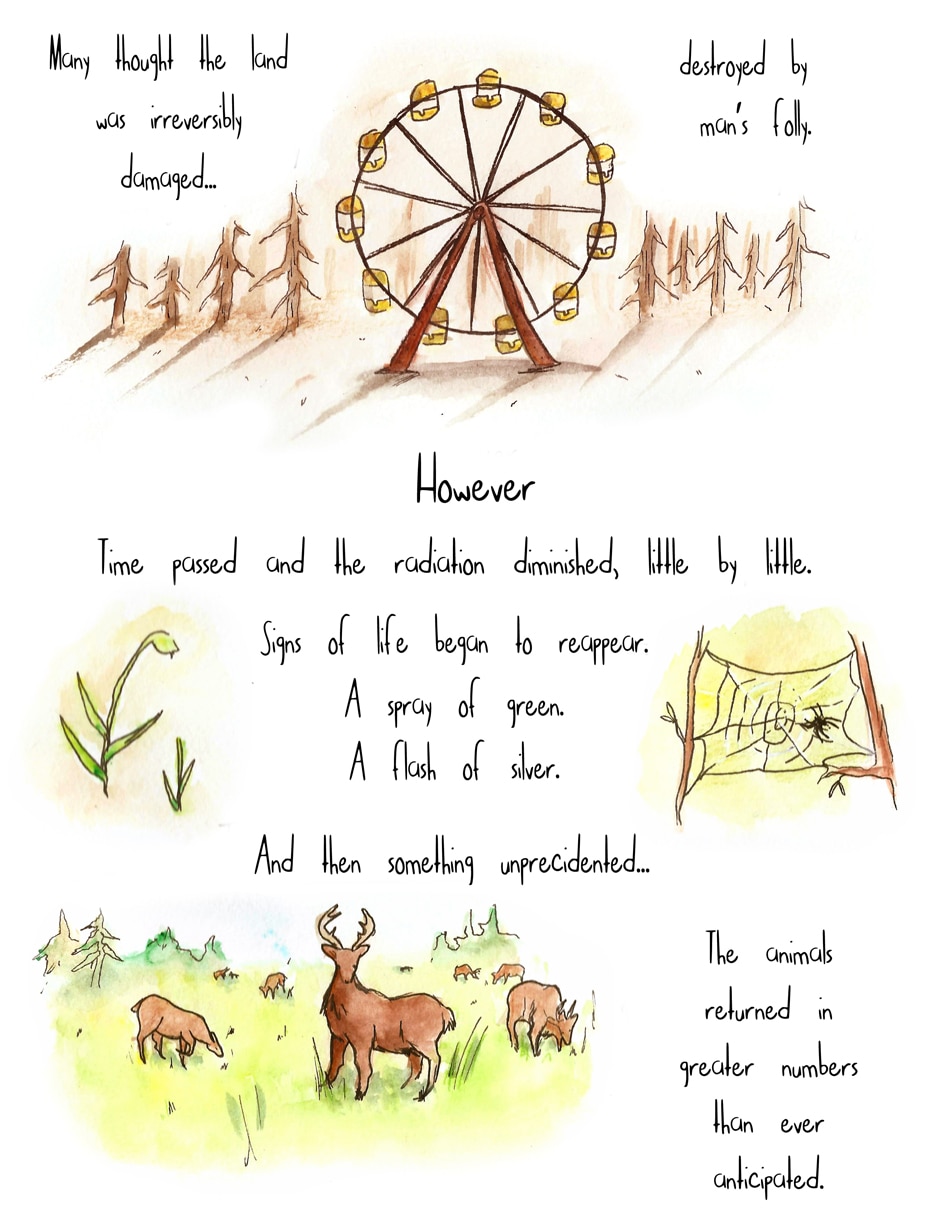 Many thought the land
was irreversibly
damaged...
destroyed by
man's folly.
However
Time passed and the radiation diminished, little by little.
Signs of life began to reappear.
A spray of green.
A flash of silver.
And then something unprecidented...
The animals
returned in
greater numbers
than ever
anticipated.